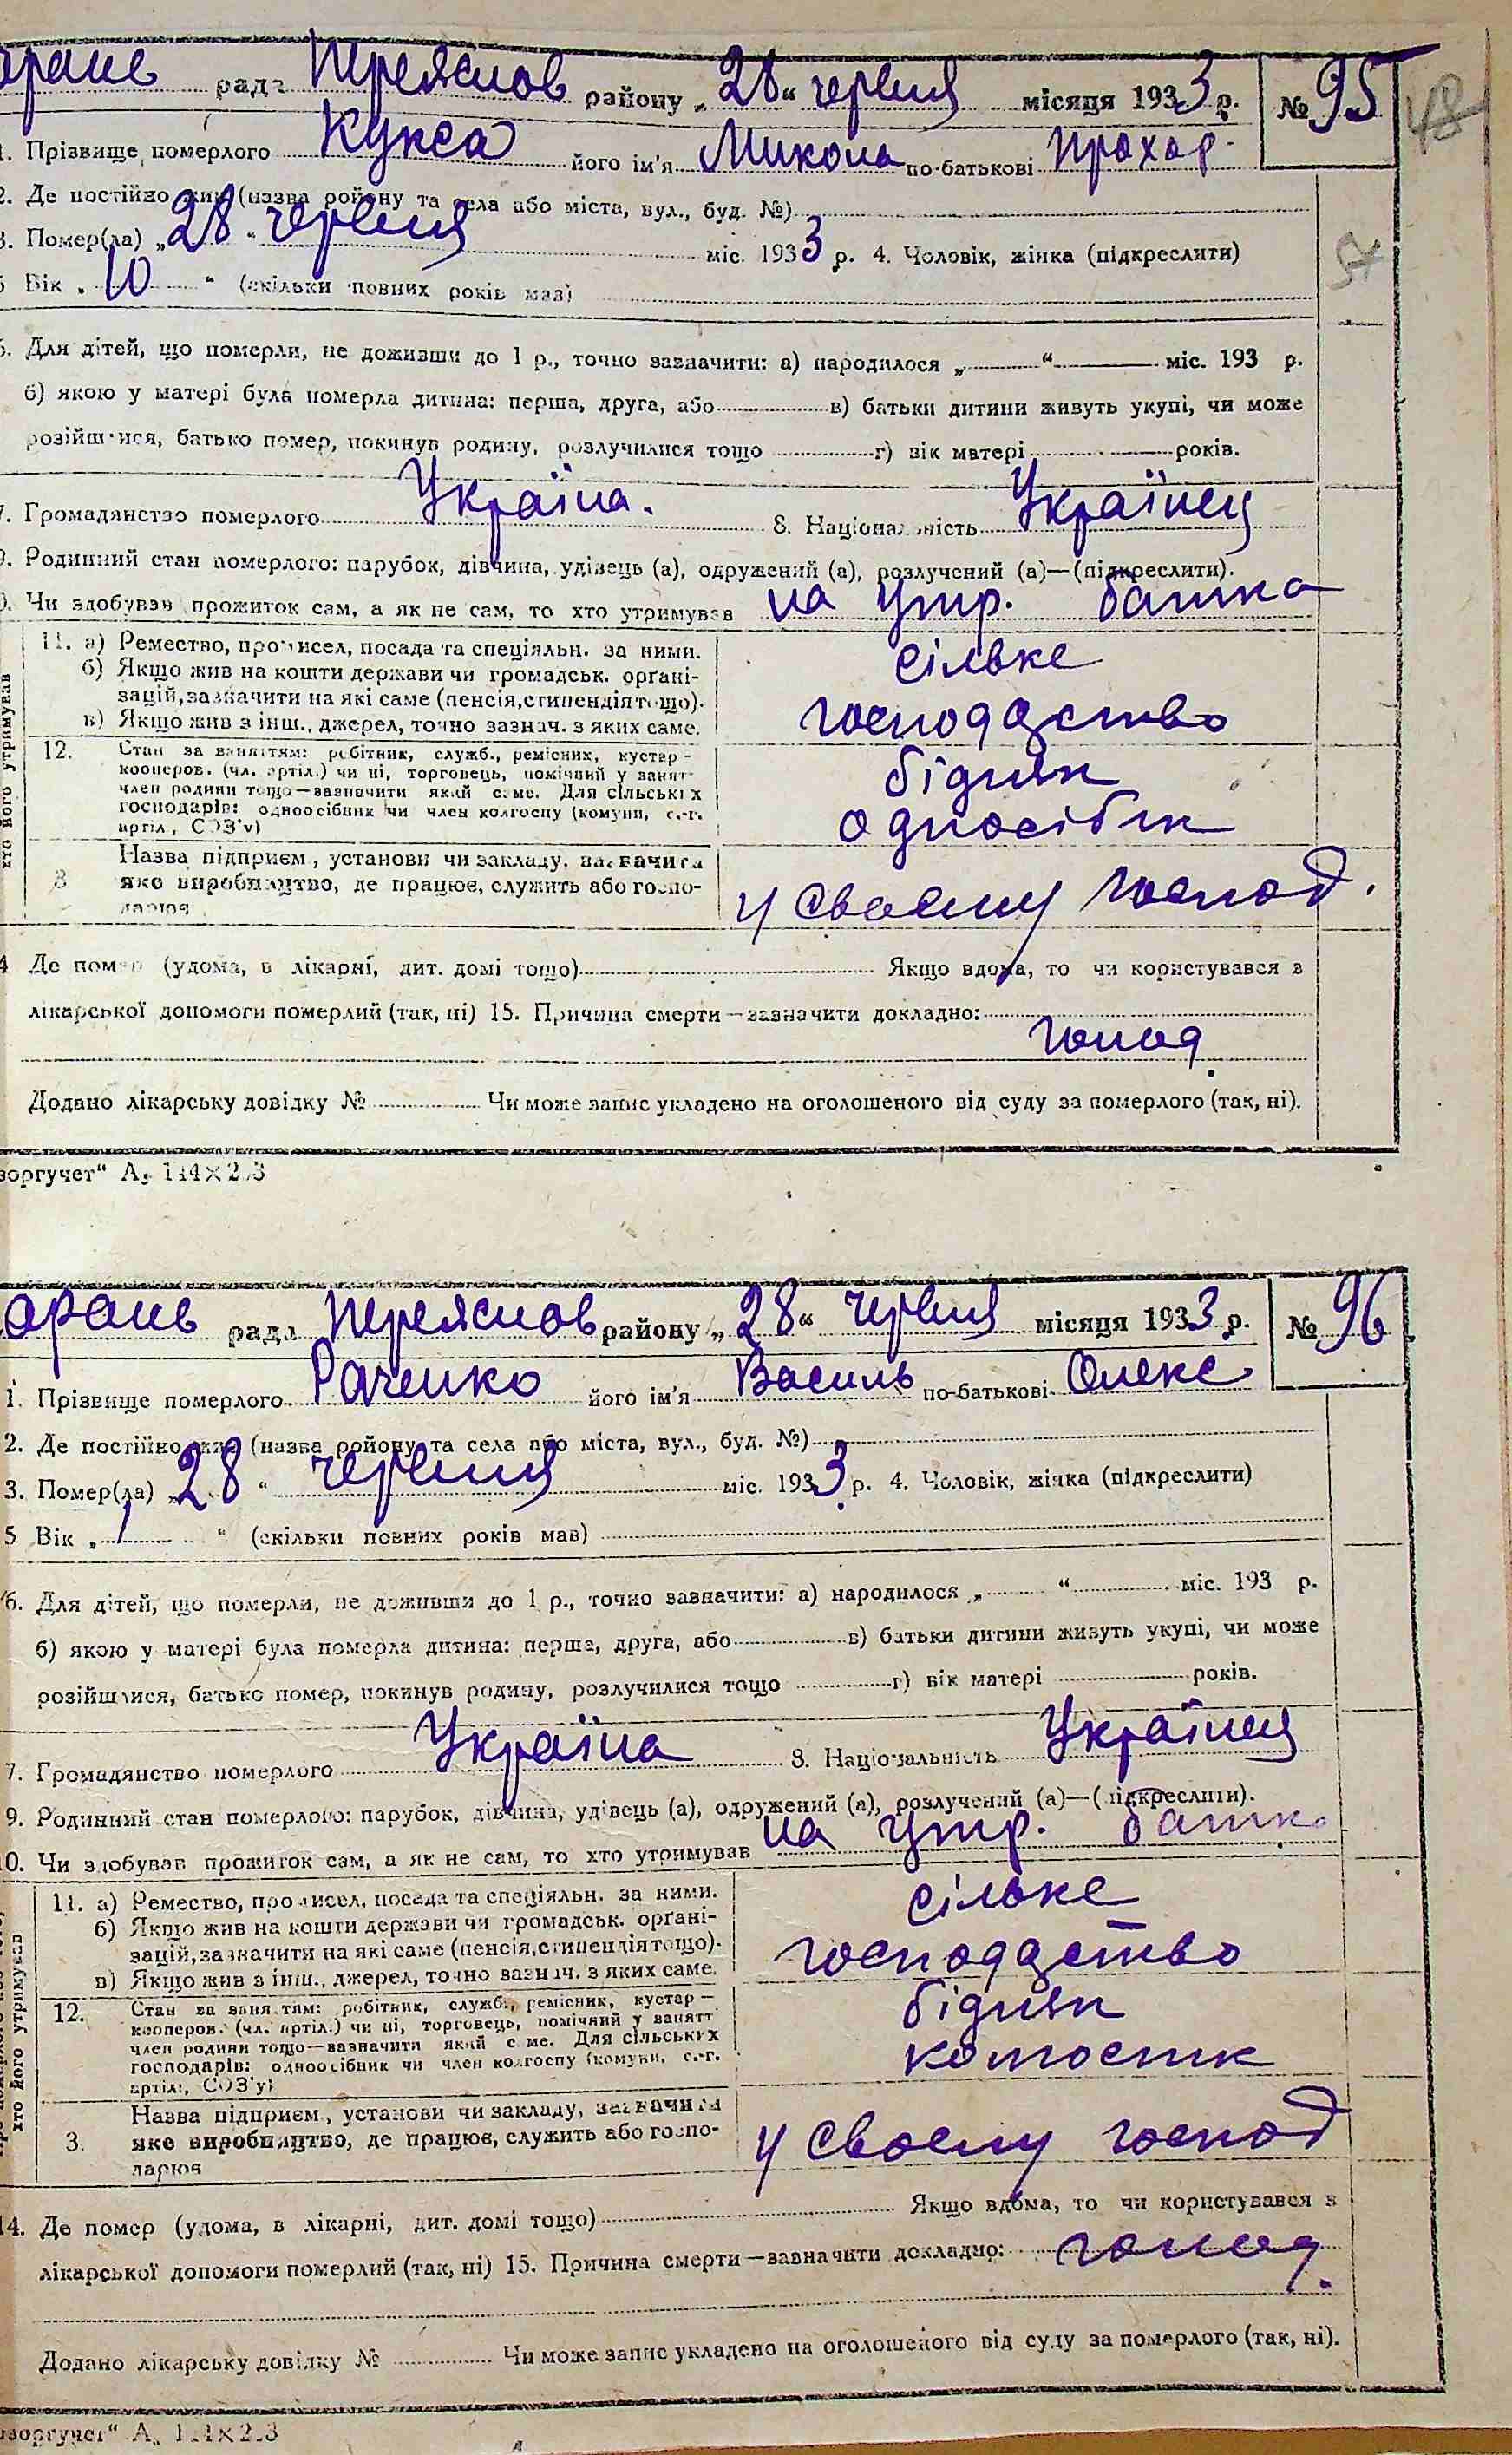 рада Переяслов району „28“ червня місяця 1933 р. № 95
48
1. Прізвище померлого Кукса його ім'я Микола по-батькові Прохор.
2. Де постійно жив (назва району та села або міста, вул., буд. №)
3. Помер(ла) „28“ червня міс. 1933 р. 4. Чоловік, жінка (підкреслити)
57
5 Вік „10“ (скільки повних років мав)
6. Для дітей, що померли, не доживши до 1 р., точно зазначити: а) народилося „ “ міс. 193 р.
б) якою у матері була померла дитина: перша, друга, або в) батьки дитини живуть укупі, чи може
розійшлися, батько помер, покинув родину, розлучилися тощо г) вік матері років.
7. Громадянство померлого Україна. 8. Національність Українец
9. Родинний стан померлого: парубок, дівчина, удівець (а), одружений (а), розлучений (а)—(підкреслити).
10. Чи здобував прожиток сам, а як не сам, то хто утримував на утр. батка
хто його утримував
11. а) Ремество, промисел, посада та спеціяльн. за ними.
б) Якщо жив на кошти держави чи громадськ. орґані-
зацій, зазначити на які саме (пенсія, стипендія тощо).
в) Якщо жив з інш., джерел, точно зазнач. з яких саме.
сільске
господдство
12. Стан за заняттям: робітник, служб., ремісник, кустар —
кооперов. (чл. артіл.) чи ні, торговець, помічний у занят-
член родини тощо—зазначити який саме. Для сільських
господарів: одноосібник чи член колгоспу (комуни, с.-г.
артіл., СОЗ'у)
бідняк
односібник
3 Назва підприєм., установи чи закладу, зазначити
яке виробництво, де працює, служить або госпо-
дарює
у своєму господ.
14 Де помер (удома, в лікарні, дит. домі тощо) Якщо вдома, то чи користувався з
лікарської допомоги померлий (так, ні) 15. Причина смерти—зазначити докладно:
голод.
Додано лікарську довідку № Чи може запис укладено на оголошеного від суду за померлого (так, ні).
зоргучет“ А₅ 144×2.3
рада Переяслов району „28“ червня місяця 1933 р. № 96
1. Прізвище померлого Раченко його ім'я Василь по-батькові Олекс
2. Де постійно жив (назва району та села або міста, вул., буд. №)
3. Помер(ла) „28“ червня міс. 1933 р. 4. Чоловік, жінка (підкреслити)
5 Вік „1“ (скільки повних років мав)
6. Для дітей, що померли, не доживши до 1 р., точно зазначити: а) народилося „ “ міс. 193 р.
б) якою у матері була померла дитина: перша, друга, або в) батьки дитини живуть укупі, чи може
розійшлися, батько помер, покинув родину, розлучилися тощо г) вік матері років.
7. Громадянство померлого Україна 8. Національність Українец
9. Родинний стан померлого: парубок, дівчина, удівець (а), одружений (а), розлучений (а)—(підкреслити).
10. Чи здобував прожиток сам, а як не сам, то хто утримував на утр. батк.
хто його утримував
11. а) Ремество, промисел, посада та спеціяльн. за ними.
б) Якщо жив на кошти держави чи громадськ. орґані-
зацій, зазначити на які саме (пенсія, стипендія тощо).
в) Якщо жив з інш., джерел, точно зазнач. з яких саме.
сільске
господдство
12. Стан за заняттям: робітник, служб., ремісник, кустар —
кооперов. (чл. артіл.) чи ні, торговець, помічний у занятт
член родини тощо—зазначити який саме. Для сільських
господарів: одноосібник чи член колгоспу (комуни, с.-г.
артіл., СОЗ'у)
бідняк
3. Назва підприєм., установи чи закладу, зазначити
яке виробництво, де працює, служить або госпо-
дарює
у своєму господ
14. Де помер (удома, в лікарні, дит. домі тощо) Якщо вдома, то чи користувався з
лікарської допомоги померлий (так, ні) 15. Причина смерти—зазначити докладно: голод.
Додано лікарську довідку № Чи може запис укладено на оголошеного від суду за померлого (так, ні).
зоргучет“ А₅ 144×2.3